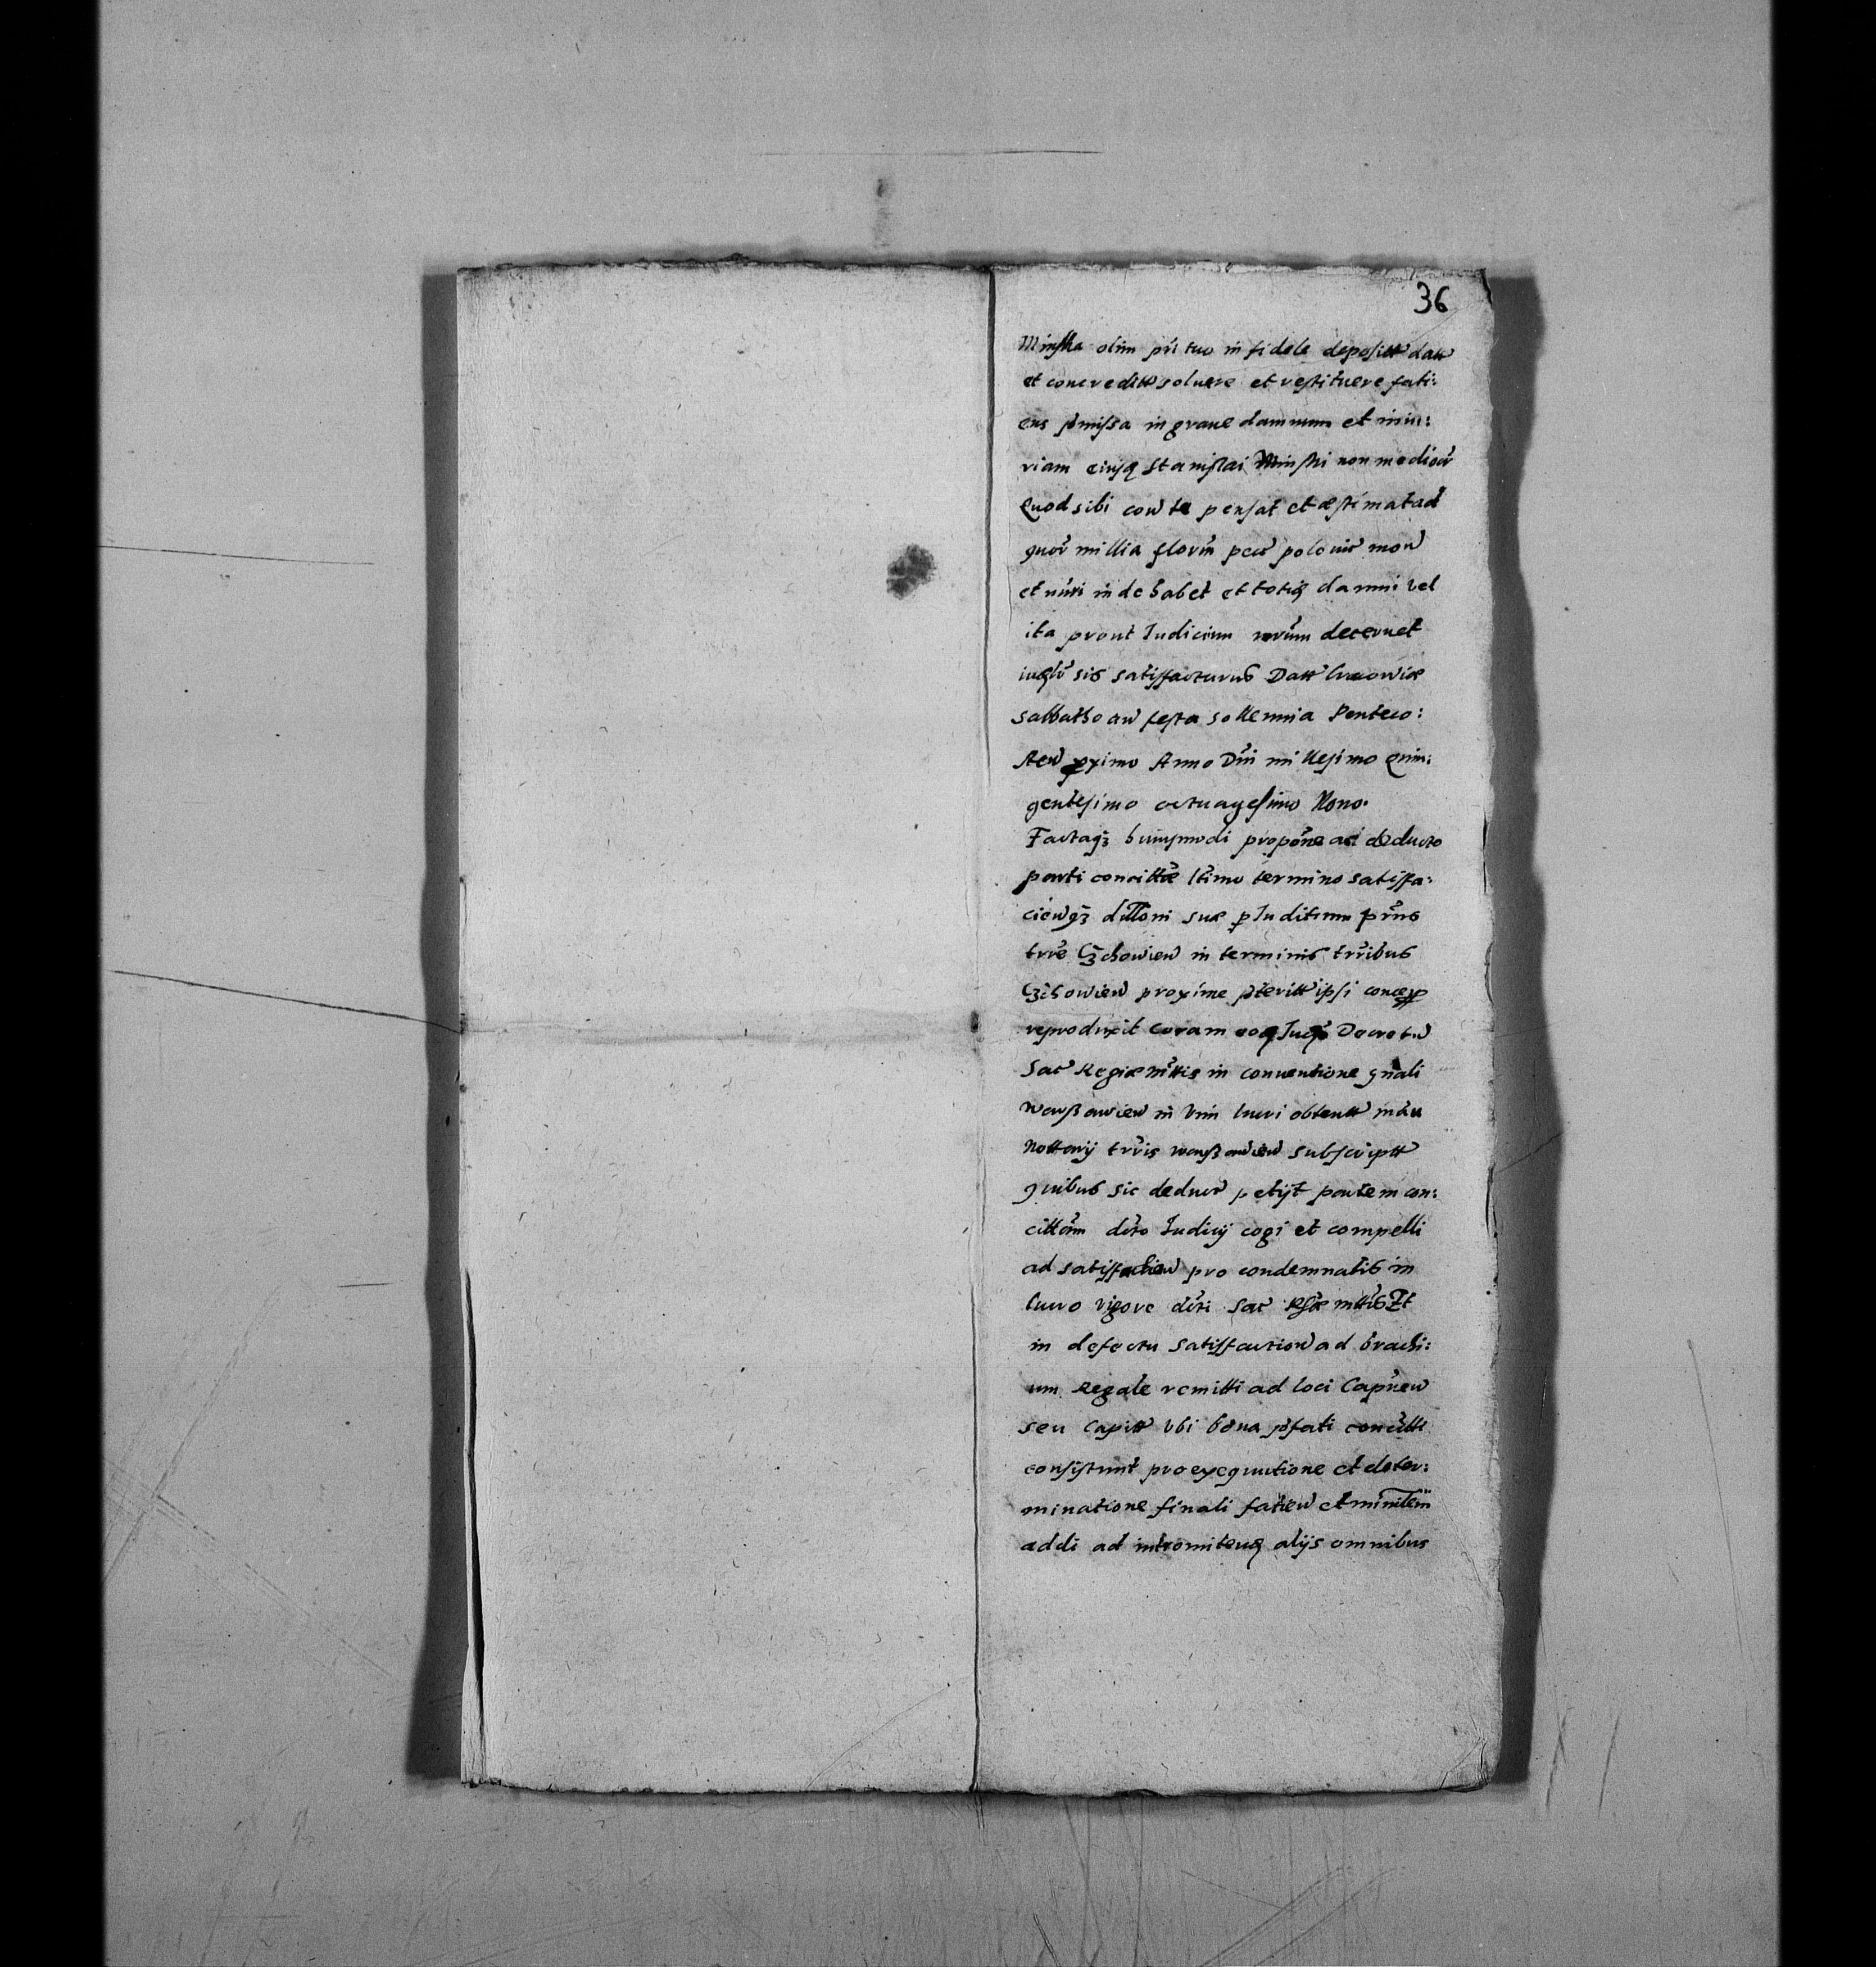 36
Minska olim pri tuo in fidele depositt datt
et concreditt soluere et restituere fati:
ens pmissa in graue damnum et iniu:
riam eiusq Stanislai Minski non medior
Quod sibi con te pensat et æstimat ad
quor millia florin pec polonic mon
et nisi inde habet et totiq damni vel
ita prout Iudicium rerum decernet
sis satisfacturus Datt Cracowiæ
sabbatho an festa sollemnia Penteco:
sten pximo Anno Dni millesimo quin:
gentesimo octuagesimo Nono.
Factaq3 huiusmodi propone ac deducto
parti concittæ ltimo termino satisfa:
ciewq3 dilloni suæ p Juditium prns
trre Czchowien in terminis trribus
Czchowien proxime pteritt ipsi concess
reproduxit Coram eoq Decretu
Sac Regiæ mttis in conuentione gnali
warssawien in vim lucri obtentt manu
nottarij trris warssawien subscriptt
quibus sic deduct petijt partem con:
cittam dcto Iudicij cogi et compelli
ad satisfactien pro condemnatis in
lucro vigore dcti Sac Rgiæ mttis Et
in defectu satisfaction ad brachi:
um Regale remitti ad loci Capnew
seu Capitt vbi bona pfati concitti
consistunt pro exequutione et deter:
minatione finali fatien et minitem
addi ad intromitenq alijs omnibus